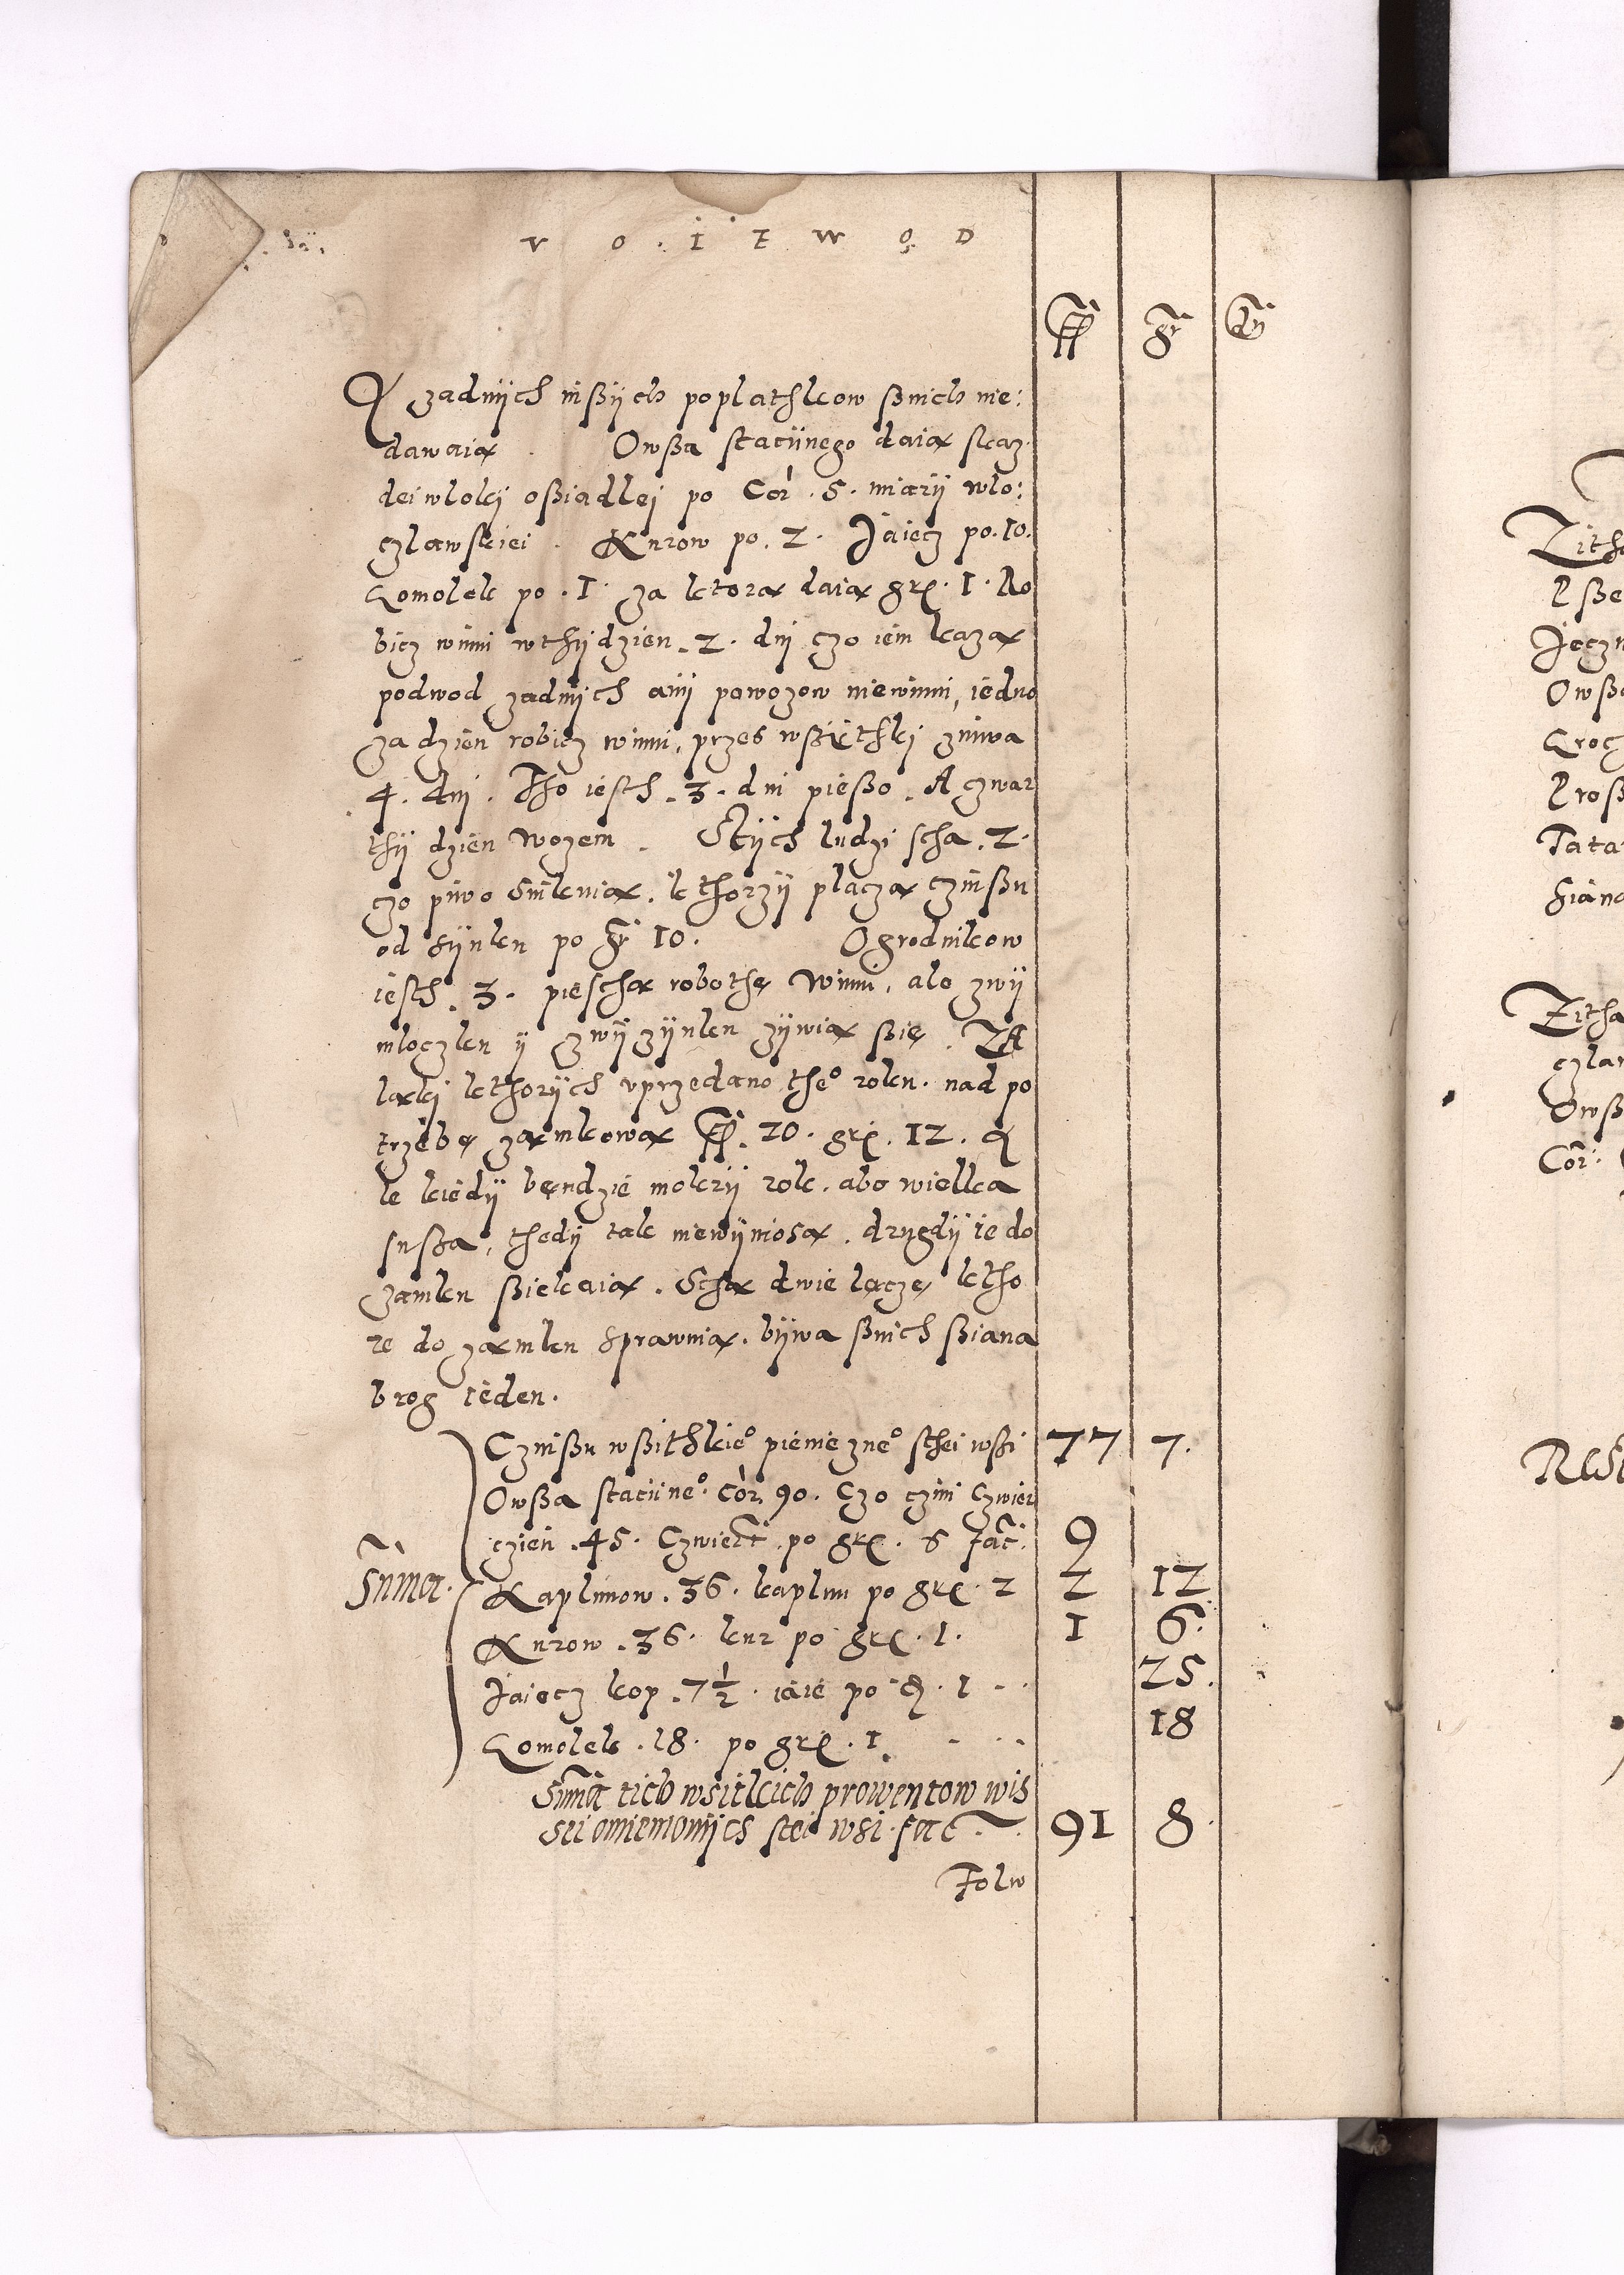 V O I E W O D
ff gr dn
A zadnÿch inßÿch poplathkow ßnich nie:
dawaią. Owßa staciinego daią skaz
dei wloki oßiadlej po Cor. 5. miarÿ wlo:
czlawskiei. Kurow po. 2. Jaiecz po. 10.
Gomolek po. 1. za ktorą daią grx. 1. Ro
bicz winni wthÿdzien. 2. dni czo iem kazą
podwod zadnÿch anÿ powozow niewinni, iedno
za dzien robicz winni, przes wßÿthki zniwa
4. dni. Tho iesth. 3. dni pießo. A czwar
thÿ dzien wozem. Stÿch ludzi scha. 2.
czo piwo Sinkuią. kthorzÿ placzą czinßu
od Sÿnku po gr 10. Ogrodnikow
iesth. 3. pieschą robothę winni, ale zwÿ
mloczku ÿ zwÿzÿnku zÿwią ßię. ZA
łąki kthorÿch vprzedano theo roku. nad po
trzebę zamkową ff. 20. grx. 12. A
le kiedÿ będzie mokrÿ rok. abo wielka
sußa, thedÿ tak niewÿniosą. drugdÿ ie do
zamku ßiekaią. Schą dwie łącze, ktho
re do zamku sprawuią. bÿwa ßnich ßiana
brog ieden.
Czinßu wßithkieo pienieznео sthei wßi 77 7.
Owßa staciineo. Cor. 90. Czo czini Czwier
czien. 45. Czwiert. po grx. 6 fac: 9
Suma.
Kaplunow. 36. kaplun po grx. 2 2 12
Kurow. 36. kur po grx. 1. 1 6.
Jaiecz kop. 7 1/2. iaie po d. 1 25.
Gomolek. 18. po grx. 1. 18
Suma tich wsitkich prowentow wis
sei omiemonÿch stei wsi. fac 91 8.
Folw